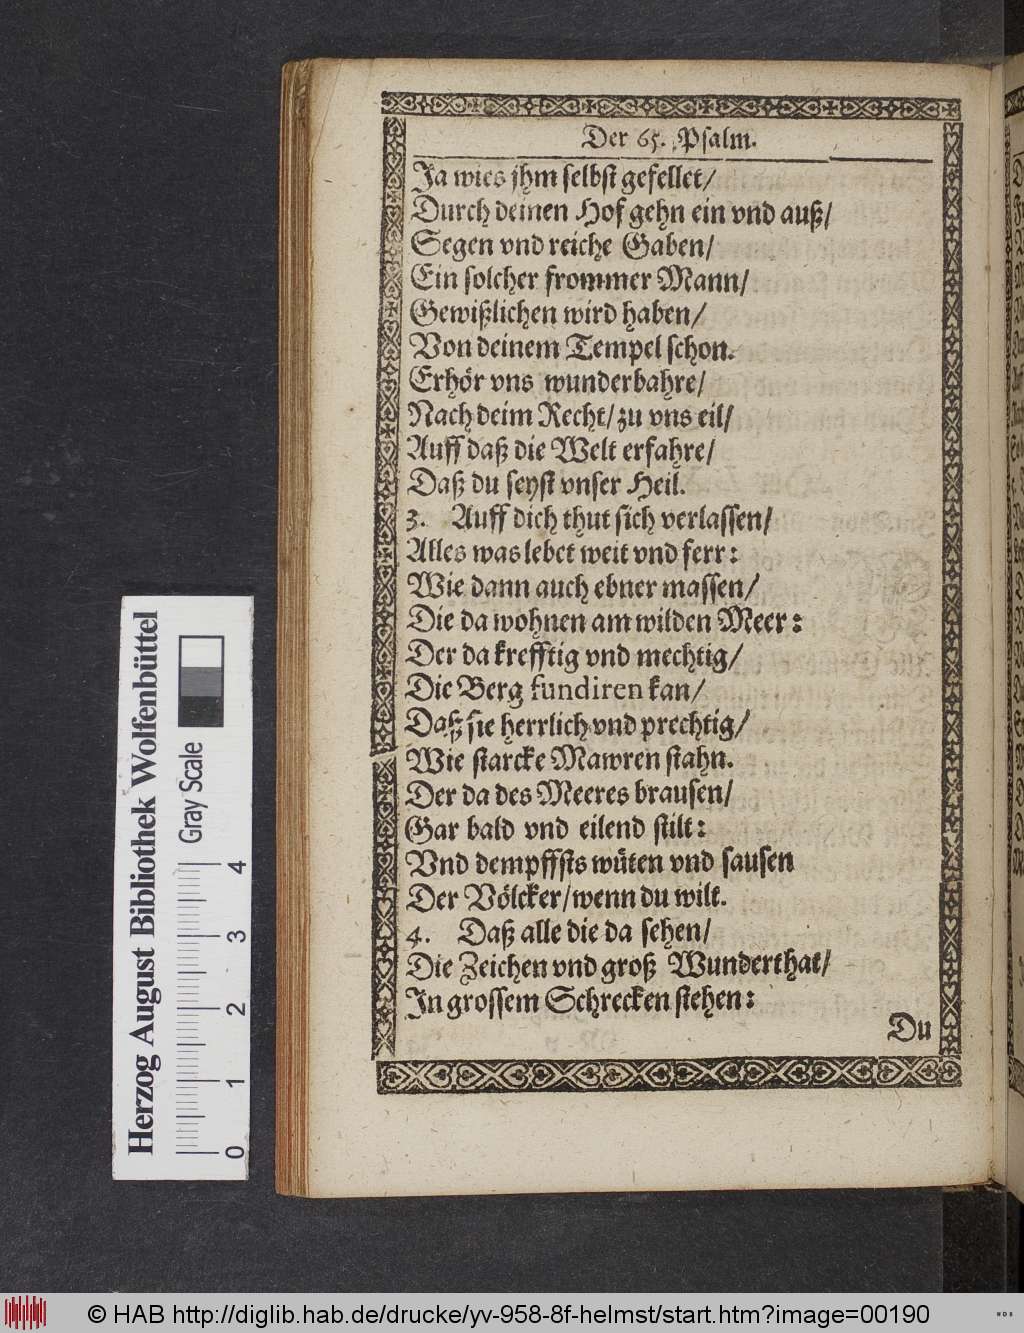 Der 65. Psalm.
Ja wies jhm selbst gefellet/
Durch deinen Hof gehn ein vnd auß/
Segen vnd reiche Gaben/
Ein solcher frommer Mann/
Gewißlichen wird haben/
Von deinem Tempel schon.
Erhör vns wunderbahre/
Nach deim Recht/ zu vns eil/
Auff daß die Welt erfahre/
Daß du seyst vnser Heil.
3. Auff dich thut sich verlassen/
Alles was lebet weit vnd ferr:
Wie dann auch ebner massen/
Die da wohnen am wilden Meer:
Der da krefftig vnd mechtig/
Die Berg fundiren kan/
Daß sie herrlich vnd prechtig/
Wie starcke Mawren stahn.
Der da des Meeres brausen/
Gar bald vnd eilend stilt:
Vnd dempffsts wüten vnd sausen
Der Völcker/ wenn du wilt.
4. Daß alle die da sehen/
Die Zeichen vnd groß Wunderthat/
In grossem Schrecken stehen:
Du
Herzog August Bibliothek Wolfenbüttel
Gray Scale
0 1 2 3 4
© HAB http://diglib.hab.de/drucke/yv-958-8f-helmst/start.htm?image=00190